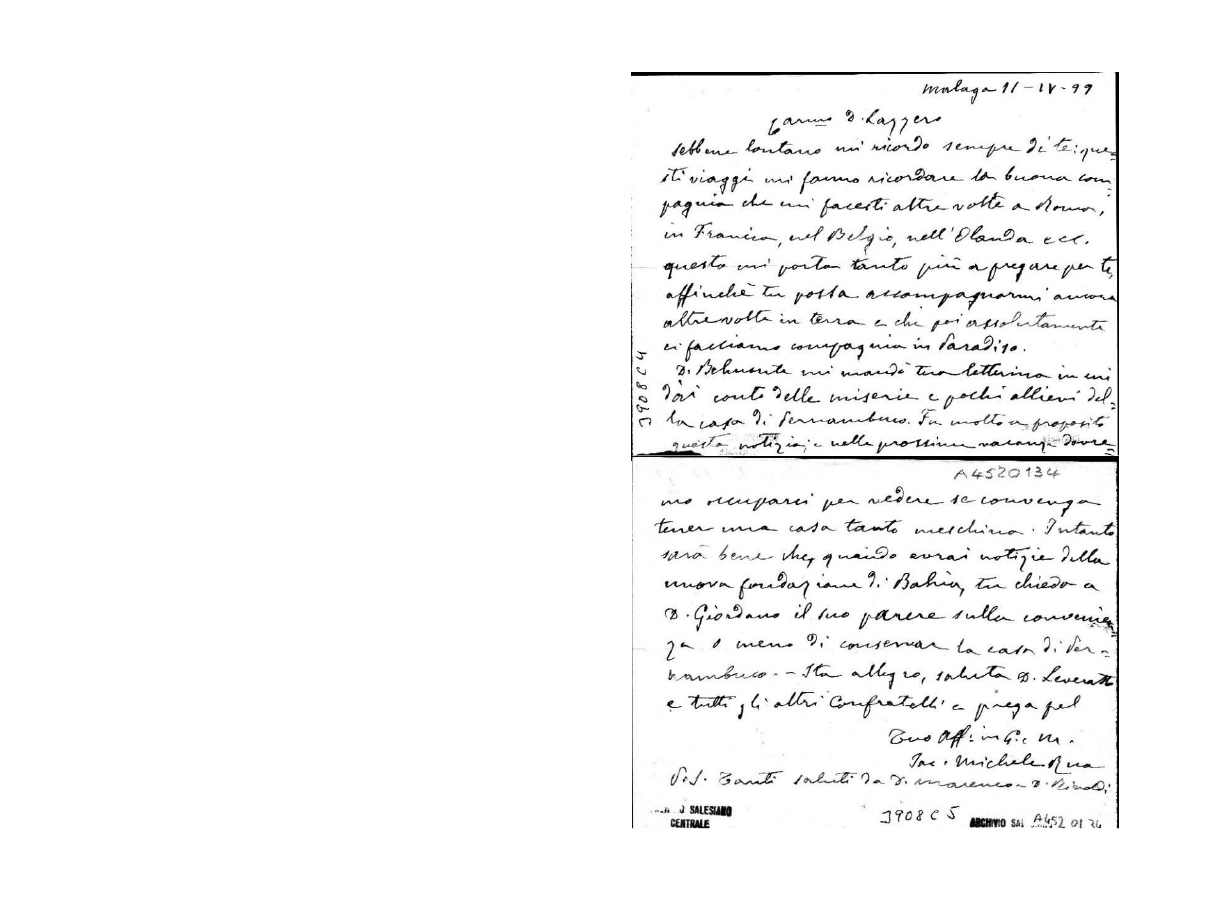 Malaga 11-IV-99
Carmo D. Lazzero
Sebbene lontano mi ricordo sempre di te: que=
sti viaggi mi fanno ricordare la buona com
pagnia che mi facesti altre volte a Roma,
in Francia, nel Belgio, nell'Olanda ecc.
questo mi porta tanto più a pregare per te,
affinchè tu possa accompagnarmi ancora
altre volte in terra e che poi assolutamente
ci facciamo compagnia in Paradiso.
D. Belmonte mi mandò tua letterina in cui
dai conto delle miserie e pochi allievi del=
la casa di Pernambuco. Fu molto a proposito
questa notizia; e nelle prossime vacanze dovre=
J908C4
A4520134
mo occuparci per vedere se convenga
tener una casa tanto meschina. Intanto
sarà bene che, quando avrai notizie della
nuova fondazione di Bahia, tu chieda a
D. Giordano il suo parere sulla convenien
za o meno di conservar la casa di Per=
nambuco. - Sta allegro, saluta D. Leveratto
e tutti gli altri Confratelli e prega pel
Tuo Aff. in G. e M.
Sac. Michele Rua
P.S. Tanti saluti da D. Marenco e D. Rinaldi
SALESIANO
CENTRALE
J908C5
ARCHIVIO SAL A452 01 34